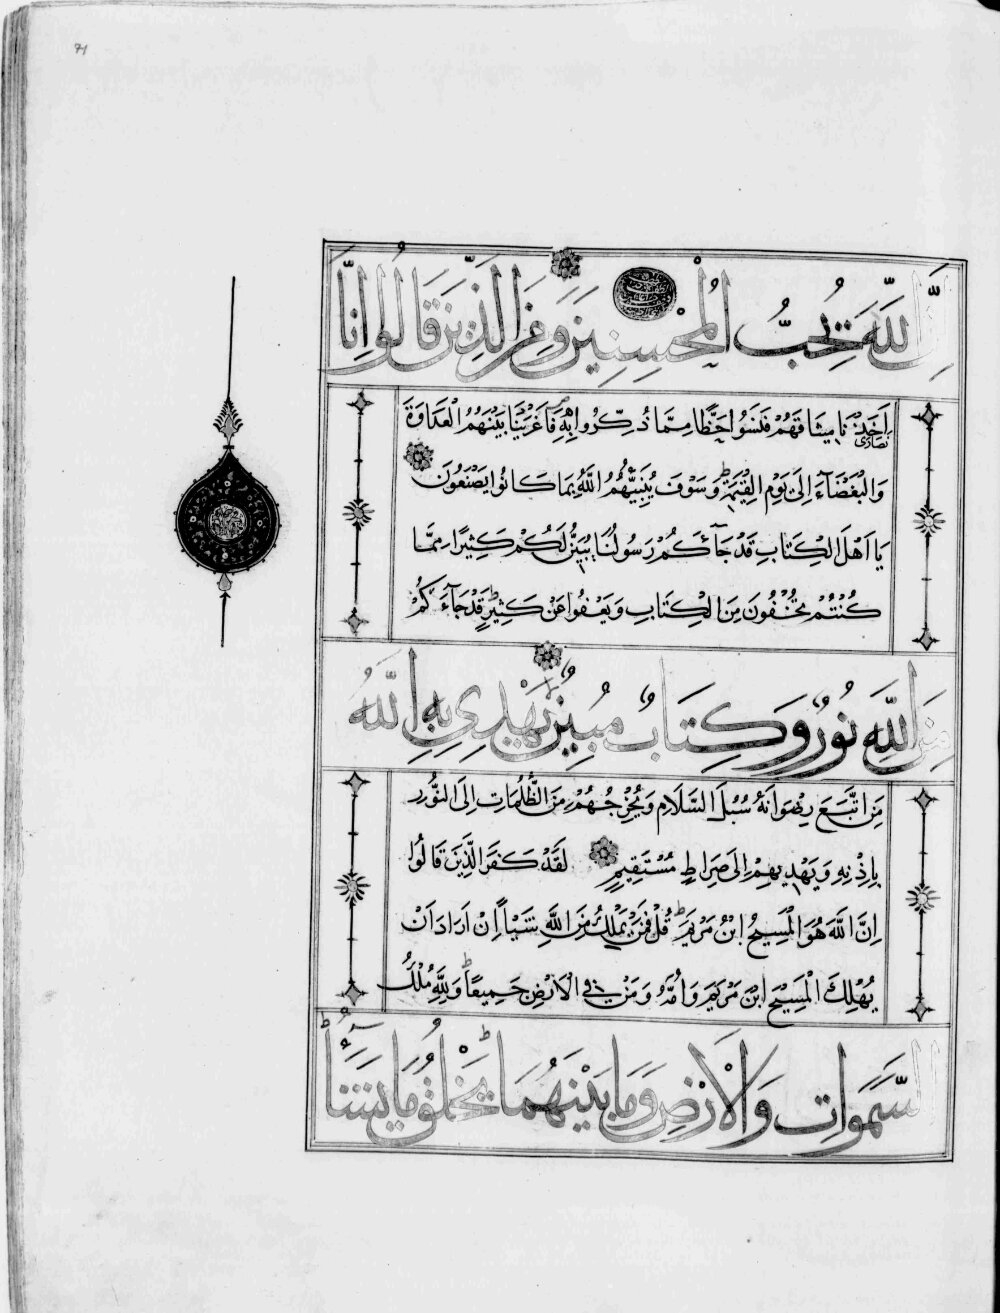 71
اِنَّ اللّٰهَ يُحِبُّ الْمُحْسِنِينَ وَمِنَ الَّذِينَ قَالُوا اِنَّا
نَصَارٰى
اَخَذْنَا مِيثَاقَهُمْ فَنَسُوا حَظًّا مِمَّا ذُكِّرُوا بِهِ فَاَغْرَيْنَا بَيْنَهُمُ الْعَدَاوَةَ
وَالْبَغْضَاءَ اِلٰى يَوْمِ الْقِيٰمَةِ وَسَوْفَ يُنَبِّئُهُمُ اللّٰهُ بِمَا كَانُوا يَصْنَعُونَ
يَا اَهْلَ الْكِتَابِ قَدْ جَآءَكُمْ رَسُولُنَا يُبَيِّنُ لَكُمْ كَثِيرًا مِمَّا
كُنْتُمْ تُخْفُونَ مِنَ الْكِتَابِ وَيَعْفُوا عَنْ كَثِيرٍ قَدْ جَآءَكُمْ
مِنَ اللّٰهِ نُورٌ وَكِتَابٌ مُبِينٌ يَهْدِي بِهِ اللّٰهُ
مَنِ اتَّبَعَ رِضْوَانَهُ سُبُلَ السَّلَامِ وَيُخْرِجُهُمْ مِنَ الظُّلُمَاتِ اِلَى النُّورِ
بِاِذْنِهِ وَيَهْدِيهِمْ اِلٰى صِرَاطٍ مُسْتَقِيمٍ لَقَدْ كَفَرَ الَّذِينَ قَالُوا
اِنَّ اللّٰهَ هُوَ الْمَسِيحُ ابْنُ مَرْيَمَ قُلْ فَمَنْ يَمْلِكُ مِنَ اللّٰهِ شَيْـًٔا اِنْ اَرَادَ اَنْ
يُهْلِكَ الْمَسِيحَ ابْنَ مَرْيَمَ وَاُمَّهُ وَمَنْ فِي الْاَرْضِ جَمِيعًا وَلِلّٰهِ مُلْكُ
السَّمٰوَاتِ وَالْاَرْضِ وَمَا بَيْنَهُمَا يَخْلُقُ مَا يَشَآءُ